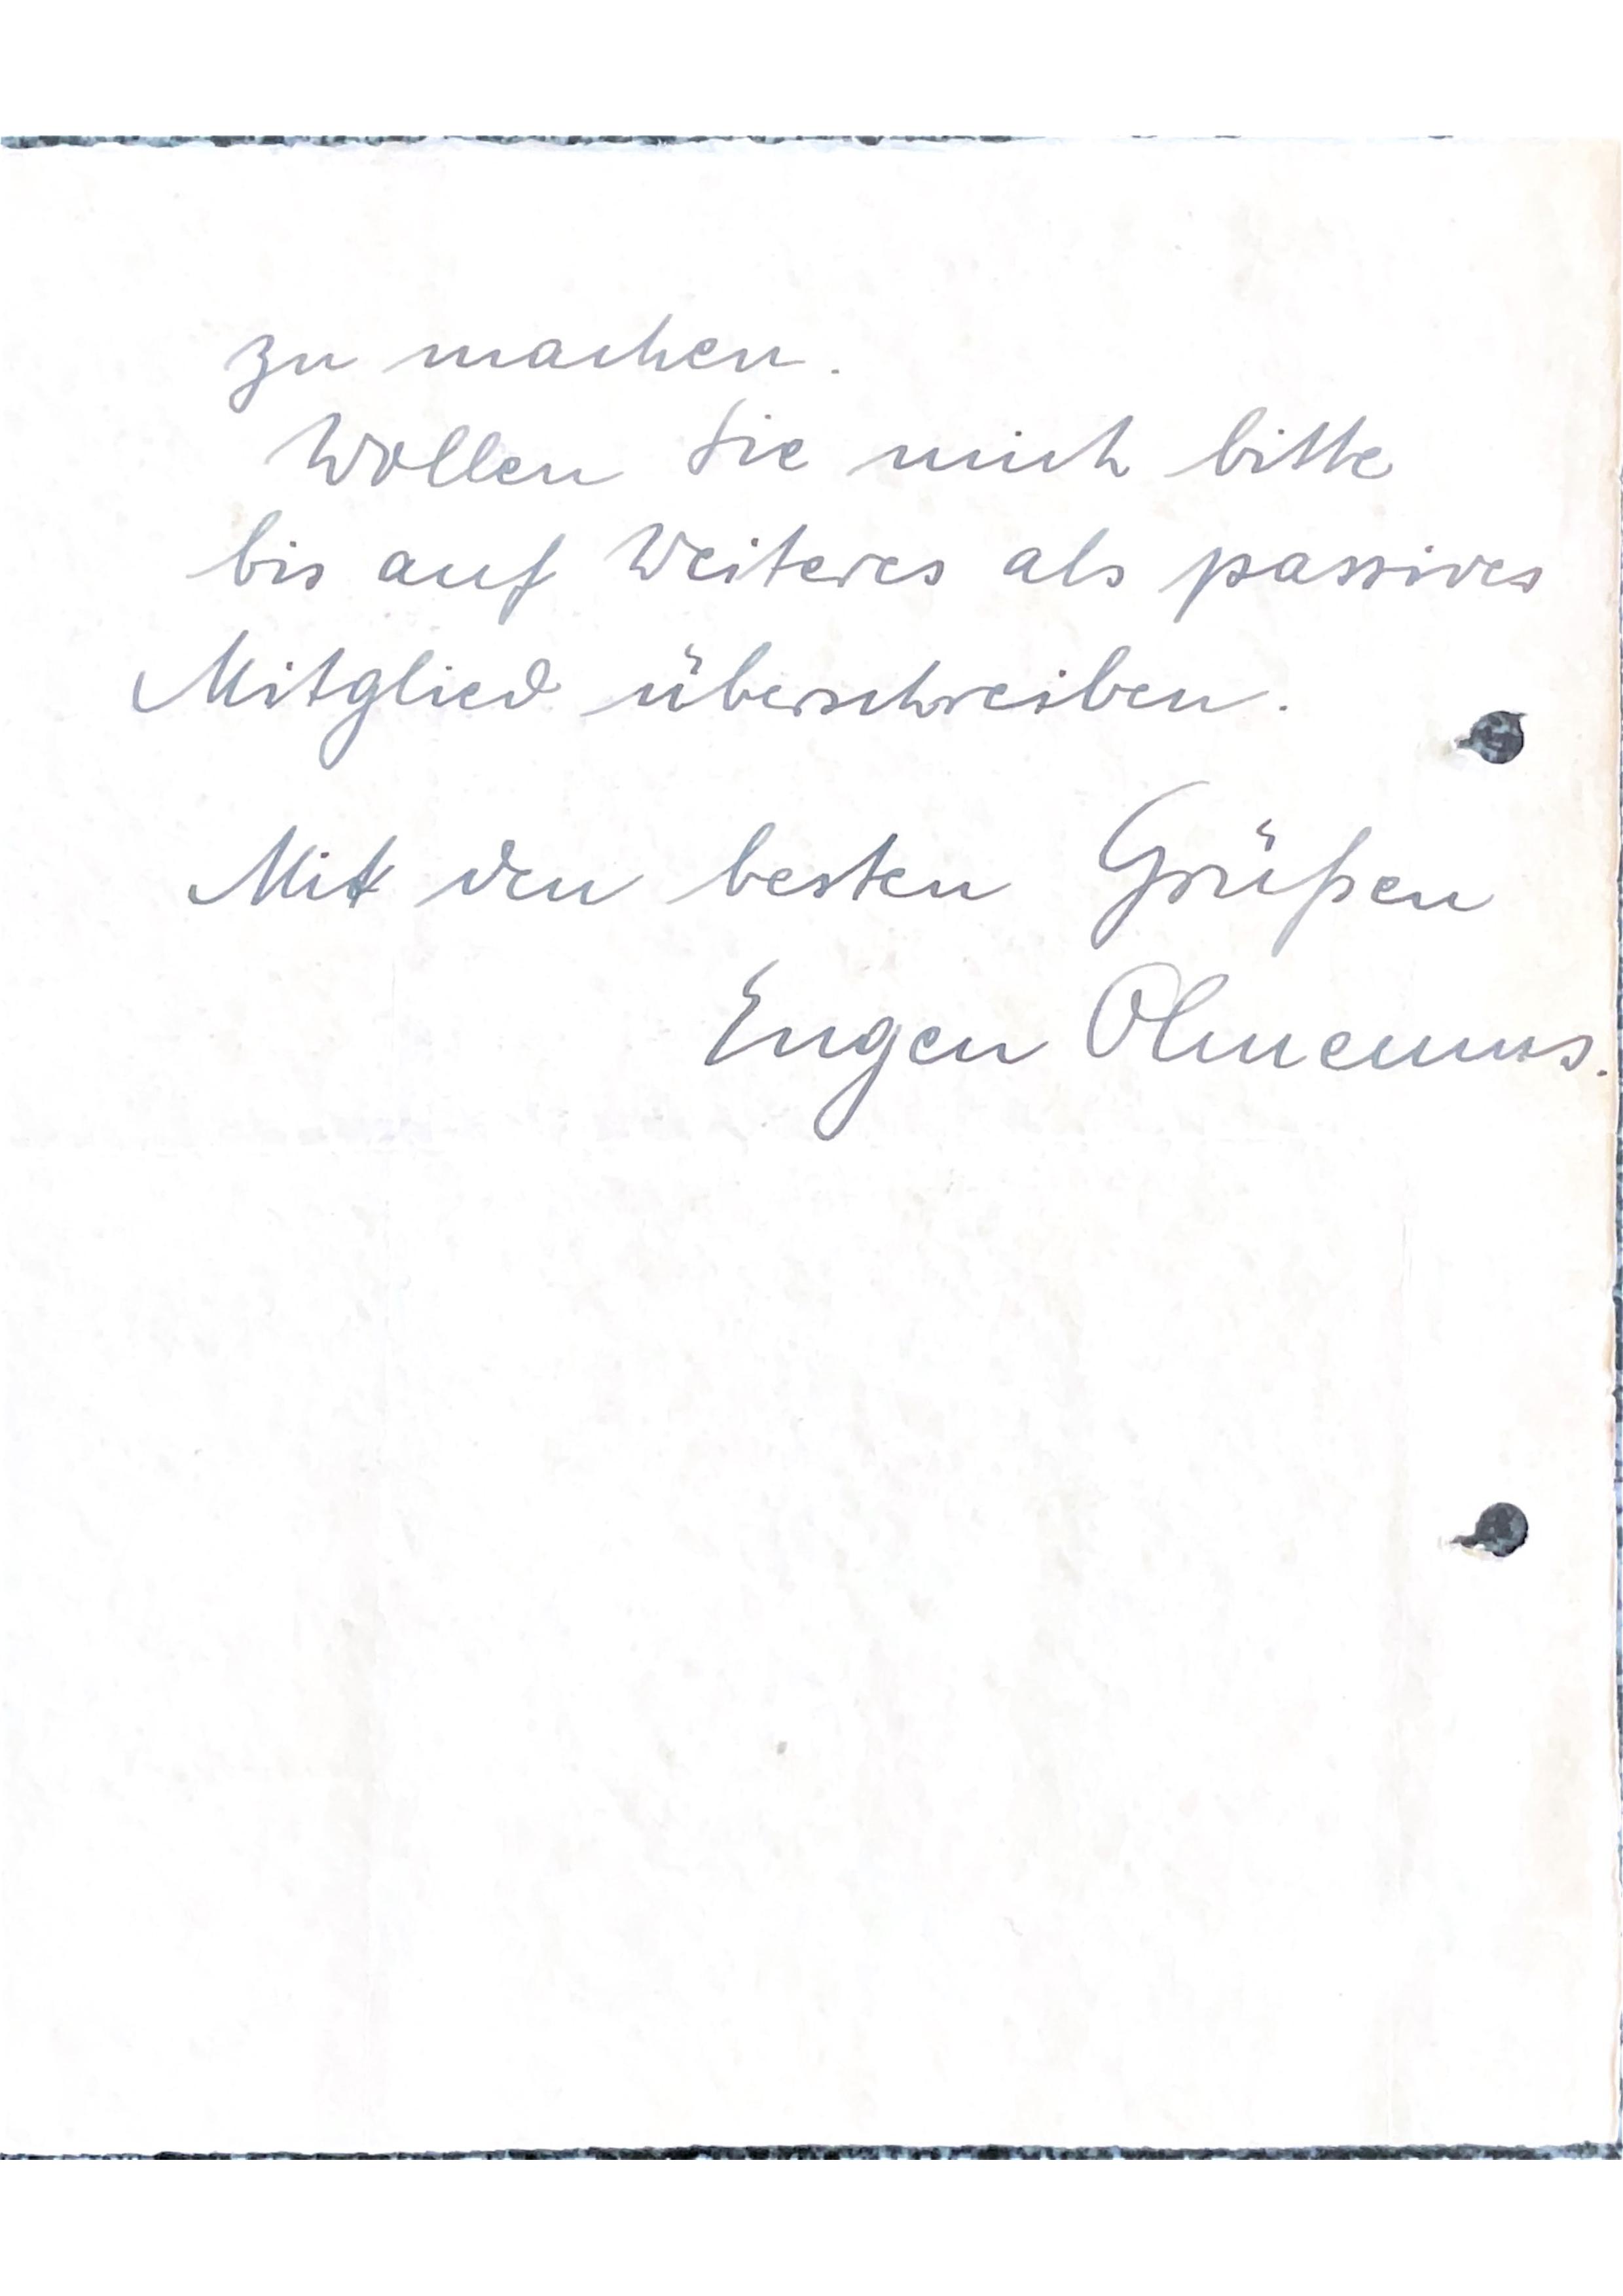 zu machen.
Wollen Sie mich bitte
bis auf Weiteres als passives
Mitglied überschreiben.
Mit den besten Grüßen
Eugen